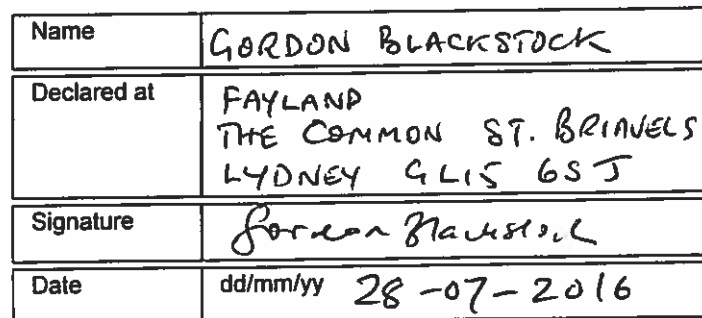 Name GORDON BLACKSTOCK
Declared at FAYLAND
THE COMMON ST. BRIAVELS
LYDNEY GL15 6SJ
Signature Gordon Blackstock
Date dd/mm/yy 28-07-2016